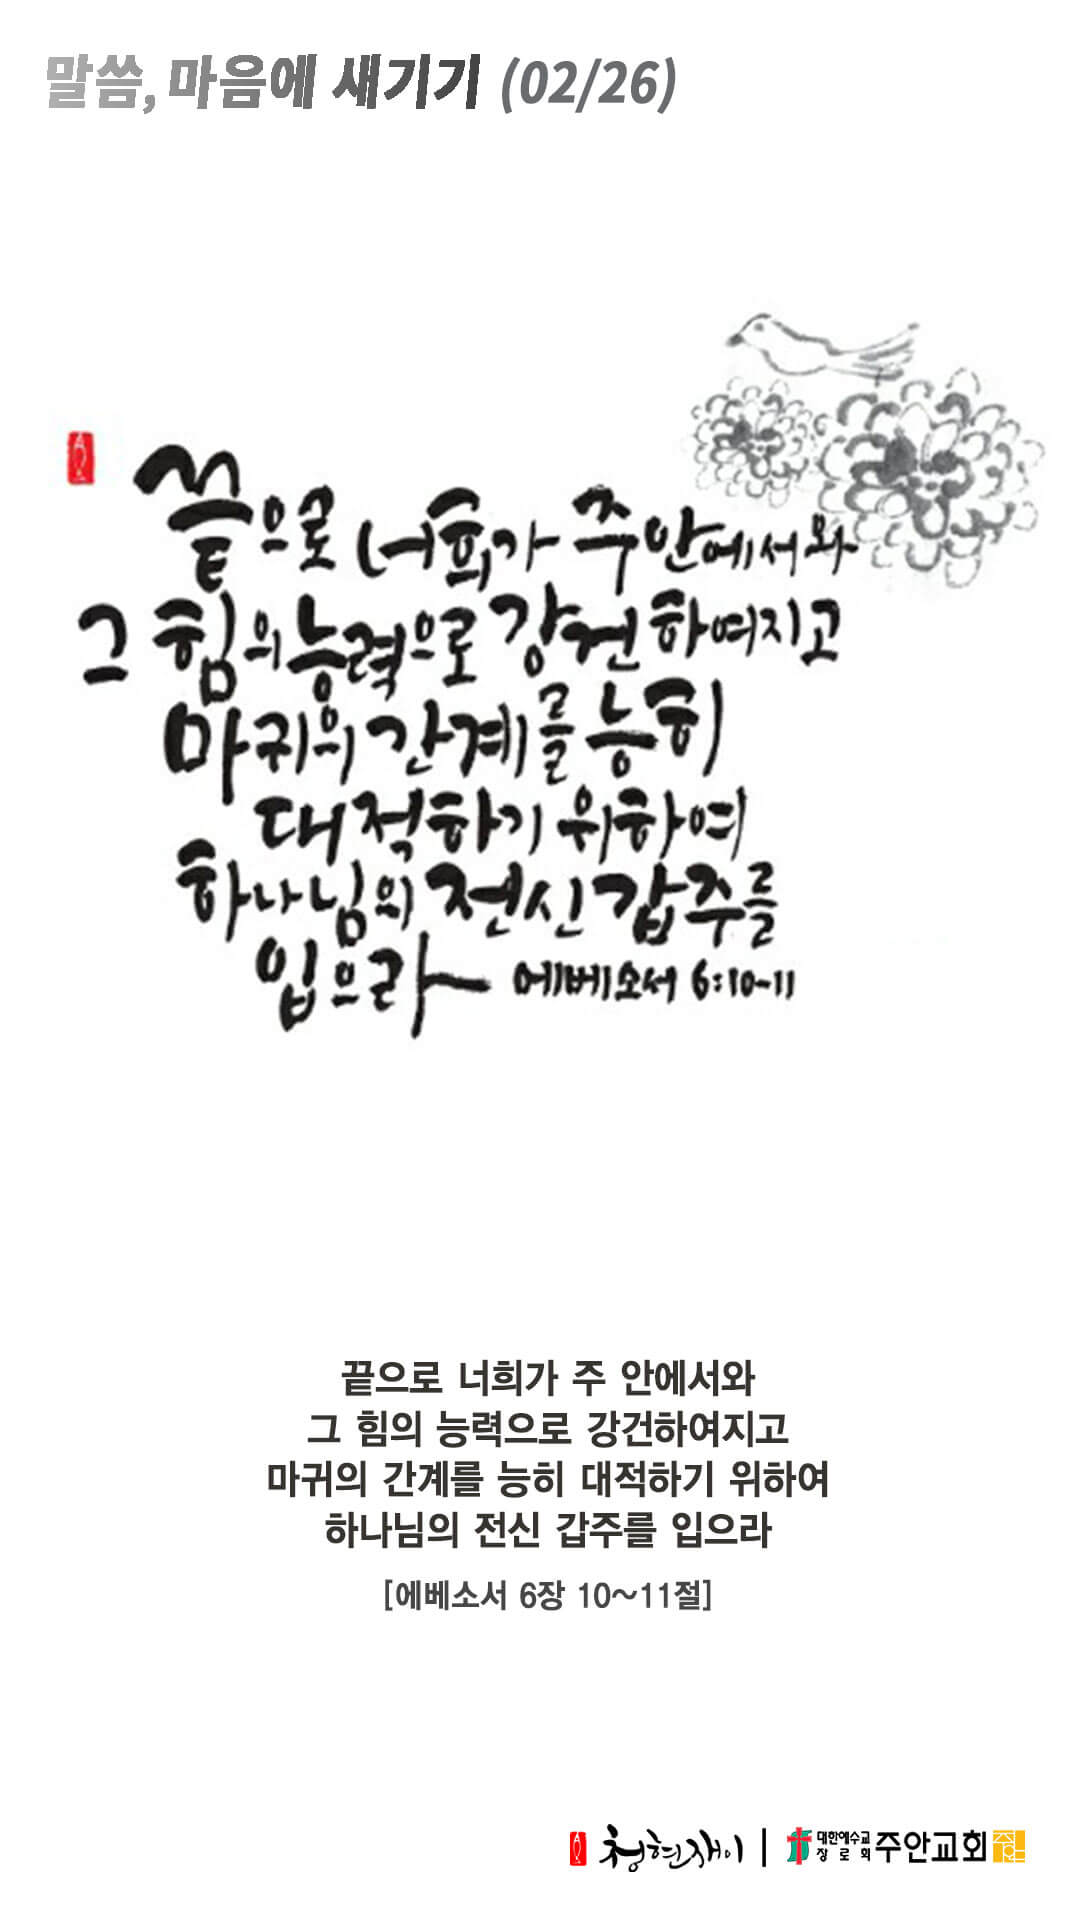 말씀, 마음에 새기기 (02/26)
끝으로 너희가 주 안에서와
그 힘의 능력으로 강건하여지고
마귀의 간계를 능히
대적하기 위하여
하나님의 전신 갑주를
입으라 에베소서 6:10~11
끝으로 너희가 주 안에서와
그 힘의 능력으로 강건하여지고
마귀의 간계를 능히 대적하기 위하여
하나님의 전신 갑주를 입으라
[에베소서 6장 10~11절]
청현재이 | 대한예수교 장로회 주안교회